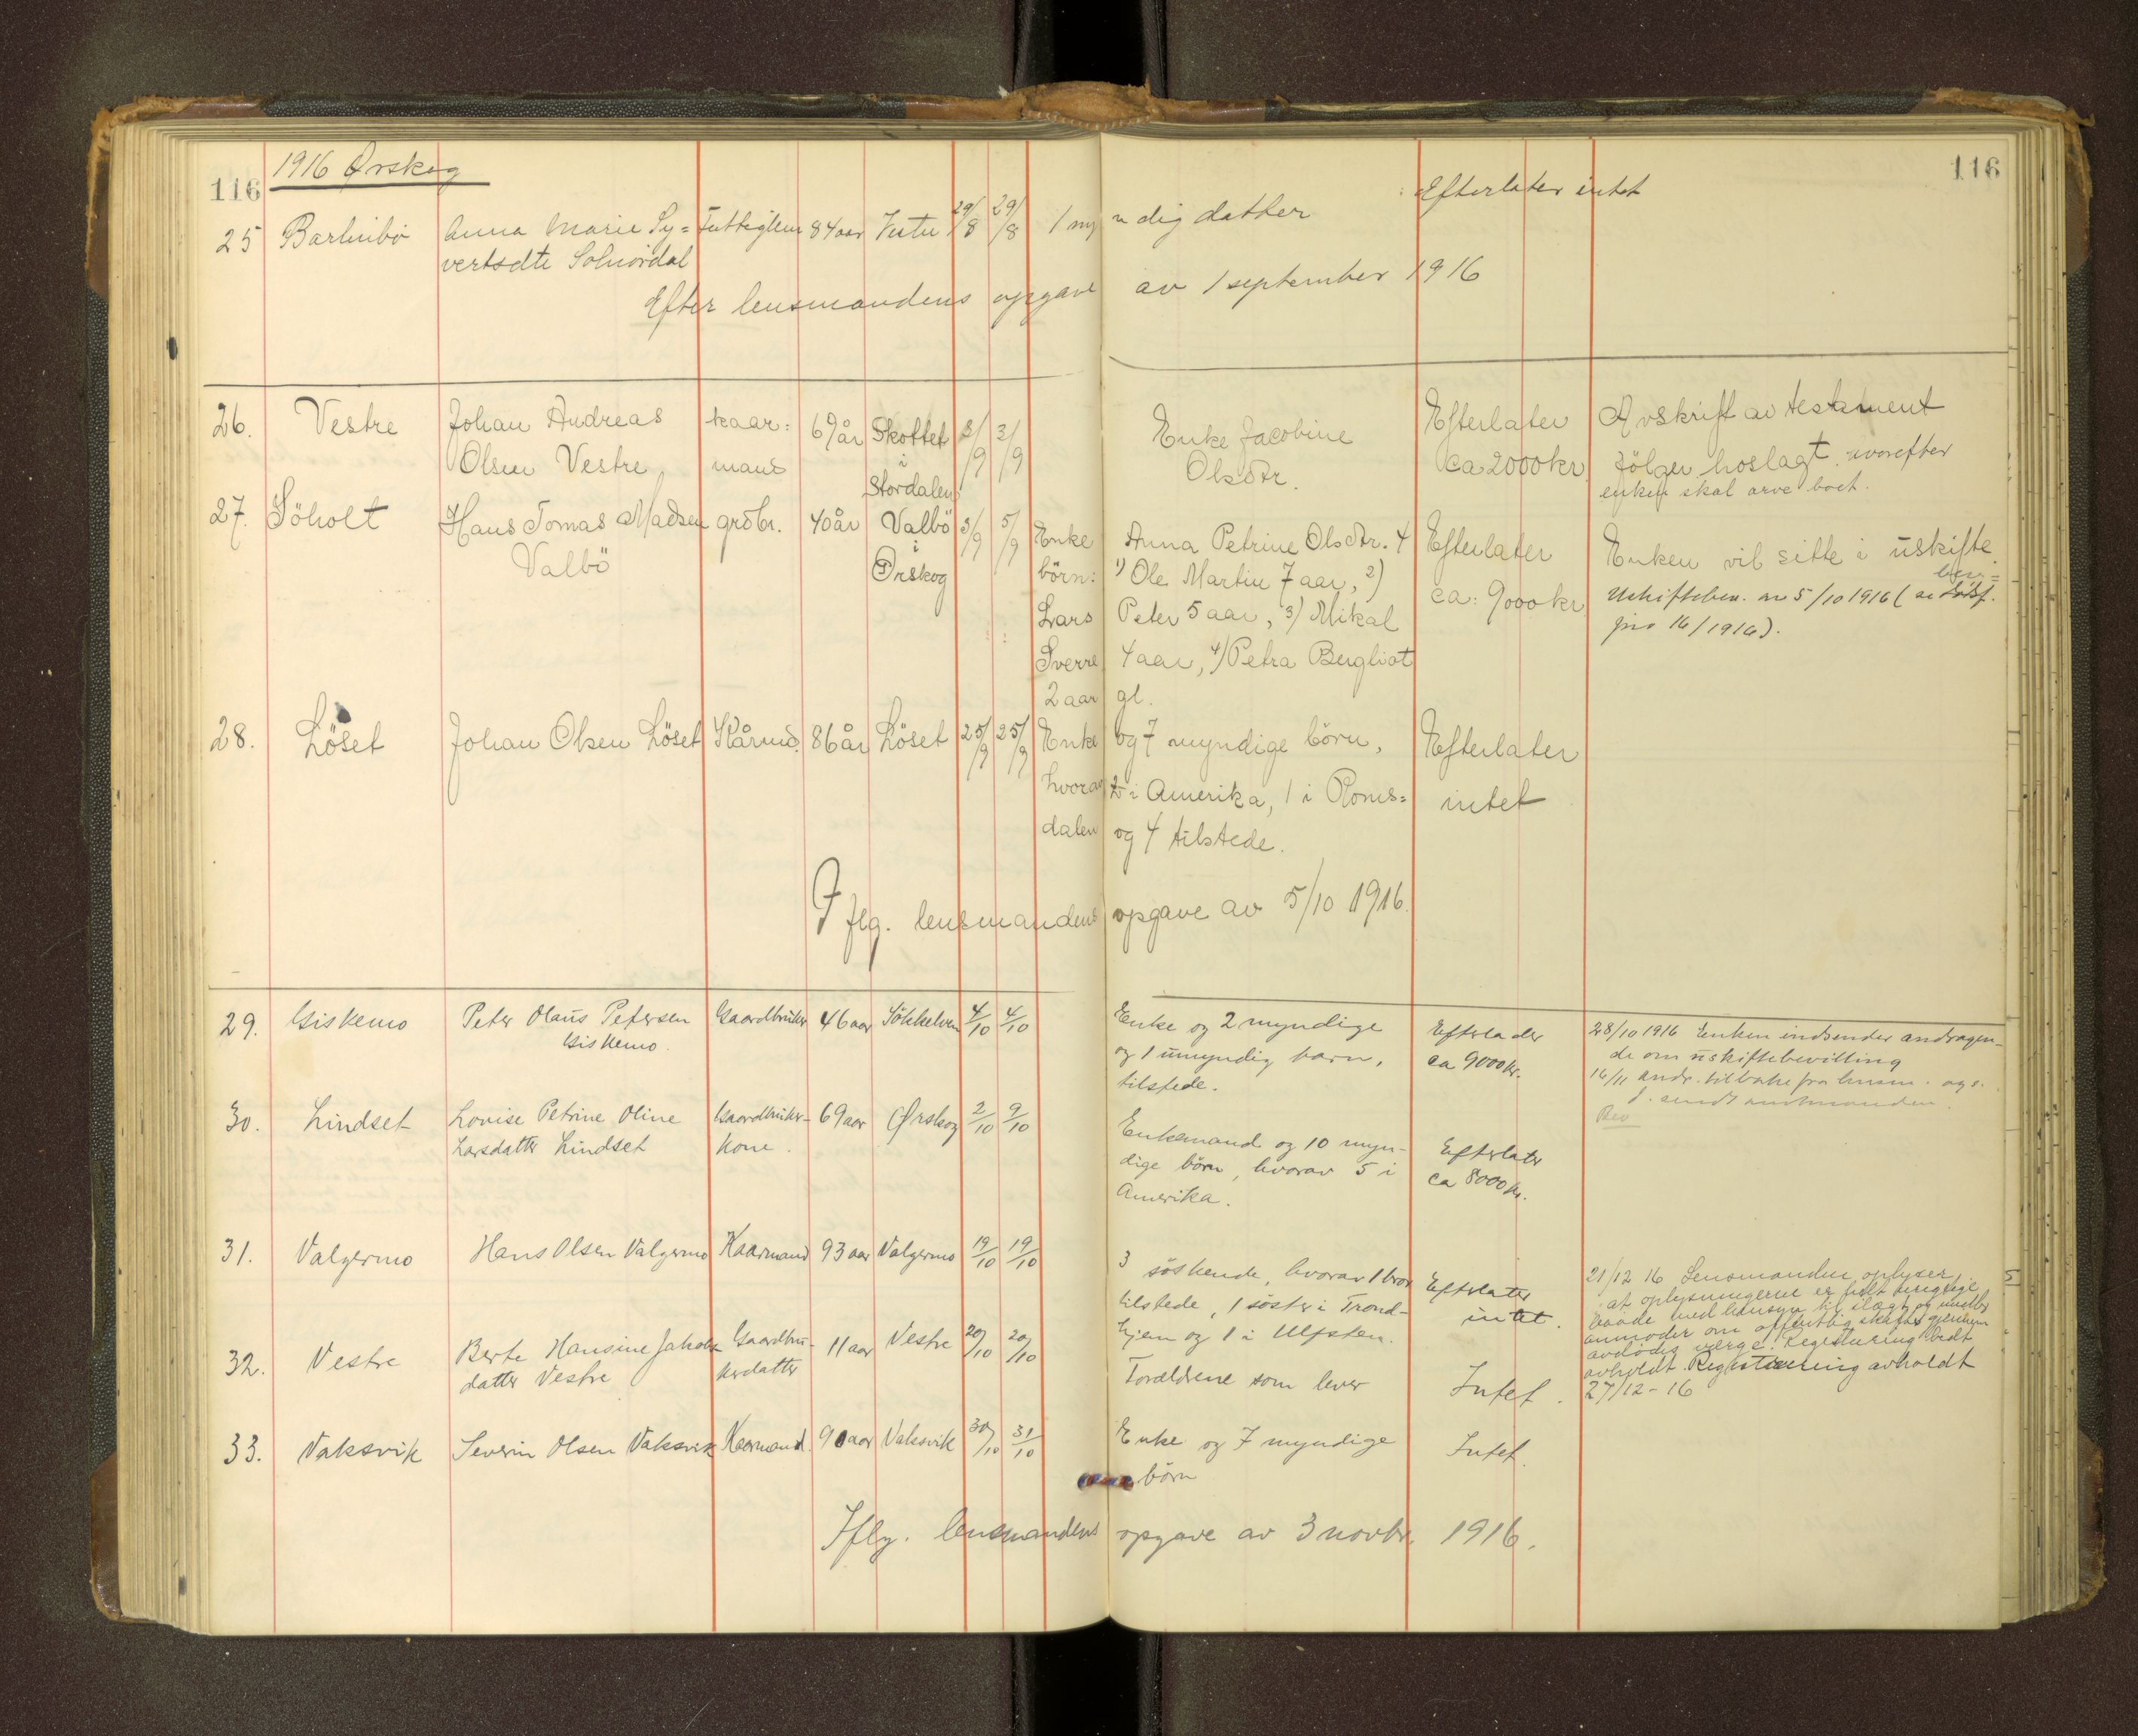 116
1916 Ørskog
116
25 Barlinbö Anna Marie Sy= Fattiglem 84 aar Vestre 29/8 29/8 1 myndig datter Efterlater intet
vertsdtr
Efter lensmandens opgave av 1 september 1916
26. Vestre Johan Andreas kaar= 69 år Skottet 2/9 3/9 Enke Jacobine Efterlater Avskrift av testament
Olsen Vestre mand i Olsdtr. ca 2000 kr fölger hoslagt. hvorefter
Stordalen enken skal arve boet.
27. Söholt Hans Tomas Madsen grdbr. 40 år Valbö 3/9 5/9 Enke Anna Petrine Olsdtr. 4 Efterlater Enken vil sitte i uskifte.
Valbö i Ørskog börn: 1) Ole Martin 7 aar, 2) ca: 9000 kr Uskiftebev. av 5/10 1916 (
Lars Peter 5 aar, 3) Mikal 16/1916).
Sverre 4 aar, 4) Petra Bergliot
2 aar gl.
28. Löset Johan Olsen Löset Kårmd. 86 år Löset 25/9 25/9 Enke og 7 myndige börn, Efterlater
hvorav 2 i Amerika, 1 i Roms= intet
dalen og 4 tilstede.
Iflg. lensmandens opgave av 5/10 1916.
29. Giskemo Peter Olaus Petersen Gaardbruker 46 aar Sökkelven 4/10 4/10 Enke og 2 myndige Efterlader 28/10 1916 Enken indsender andragen-
Giskemo. og 1 umyndig barn, ca 9000 kr. de om uskiftebevilling
tilstede. 16/11 andr. tilbake fra lensm. og s.
d. sendt amtmanden.
30. Lindset Lovise Petrine Oline Gaardbruker- 69 aar Ørskog 2/10 9/10 Enkemand og 10 myn- Efterlater
Larsdatter Lindset kone. dige börn, hvorav 5 i ca 8000 kr.
Amerika.
31. Valgermo Hans Olsen Valgermo Kaarmand 93 aar Valgermo 19/10 19/10 3 söskende, hvorav 1 bror Efterlater 21/12 16 Lensmanden oplyser,
tilstede, 1 söster i Trond- intet. at oplysningerne er helt urigtige
hjem og 1 i Ulfsten. baade med hensyn til slegt og midler
anmoder om offentlig skifte gjennem
avdödes verge. Registrering bedt
avholdt. Registrering avholdt
27/12-16
32. Vestre Berte Hansine Jakobs- Gaardbru- 11 aar Vestre 20/10 20/10 Forældrene som lever Intet.
datter Vestre kerdatter
33. Vaksvik Severin Olsen Vaksvik Kaarmand 90 aar Vaksvik 30/10 31/10 Enke og 7 myndige Intet.
börn
Iflg. lensmandens opgave av 3 novbr. 1916.